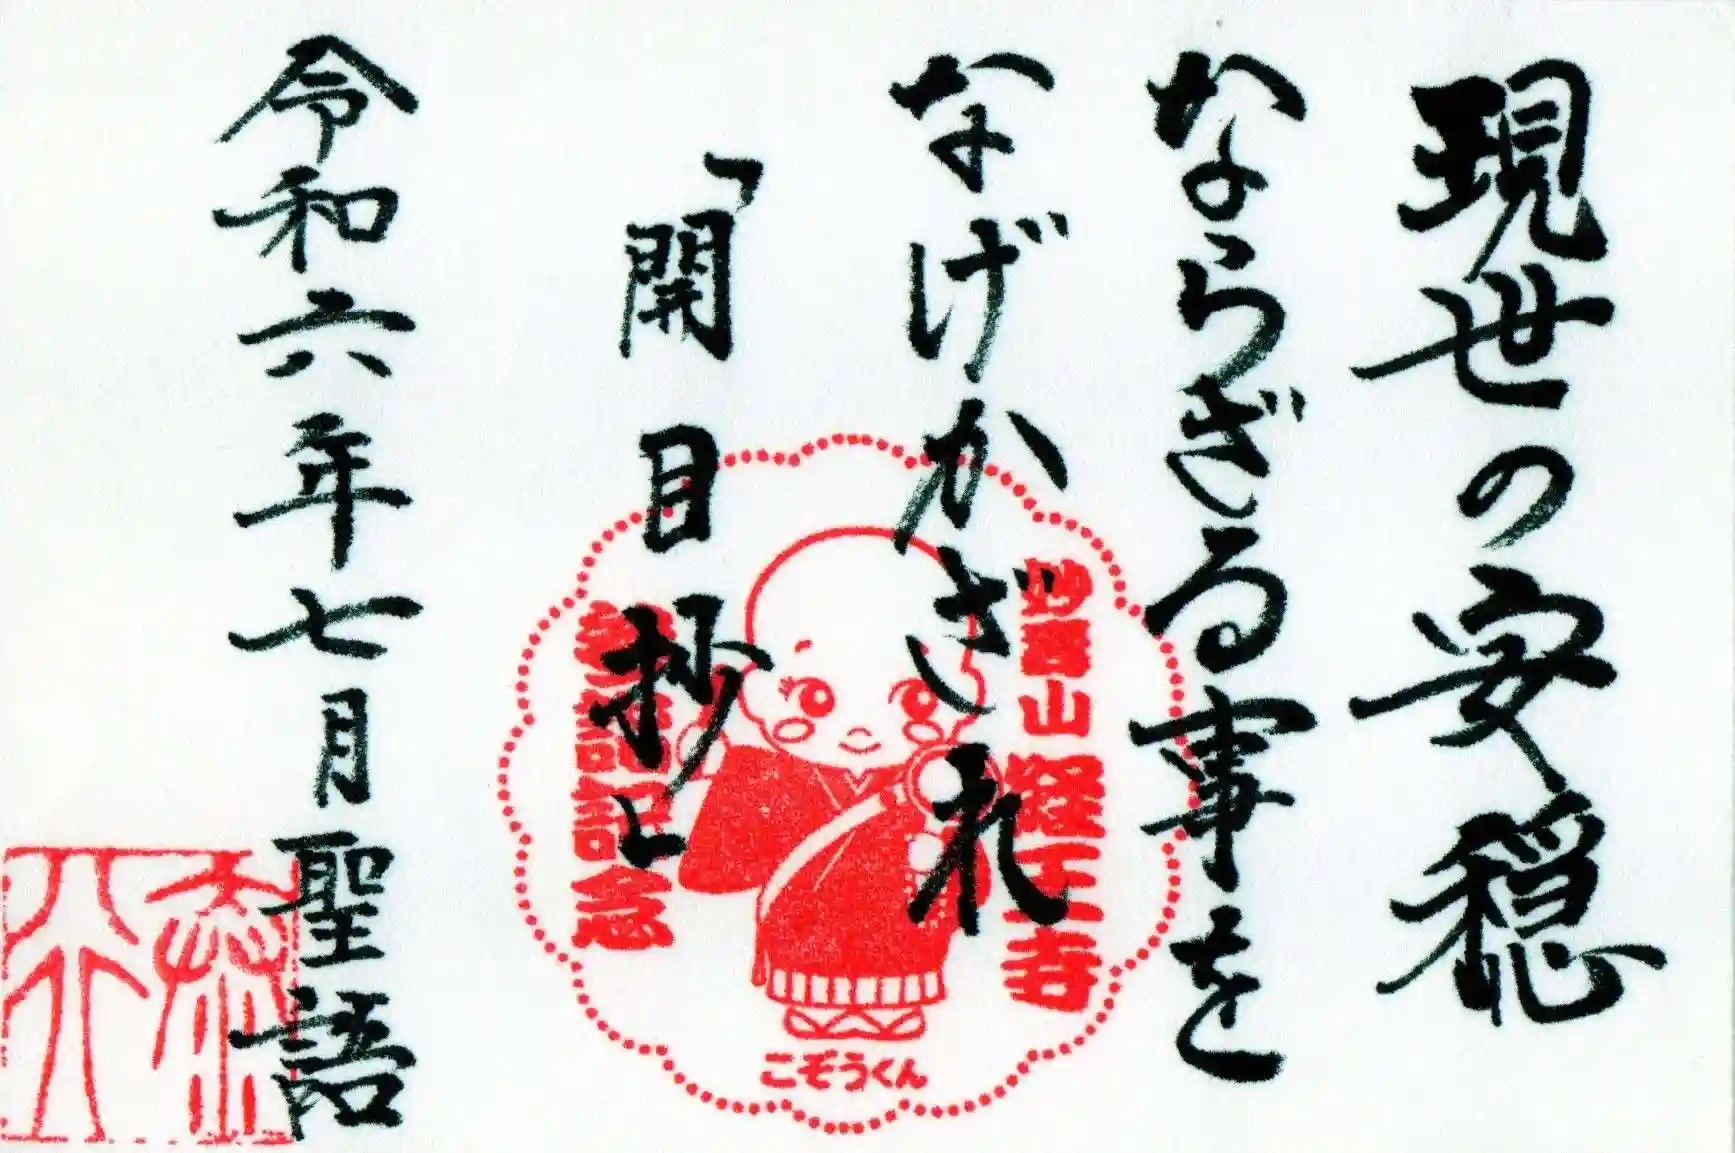 現世の安穏
ならざる事を
なげかざれ
「開目抄」
令和六年七月聖語
妙壽山 経王寺
参詣記念
こぞうくん